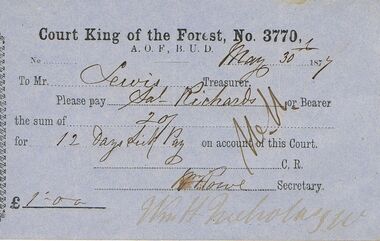 Court King of the Forest, No. 3770.
A. O. F., B. U. D.
No May 30 1877
To Mr. Lewis Treasurer.
Please pay Richards or Bearer
the sum of 20/
for 12 Days Sick Pay on account of this Court.
C. R.
Rowe Secretary.
£ 1-0-0